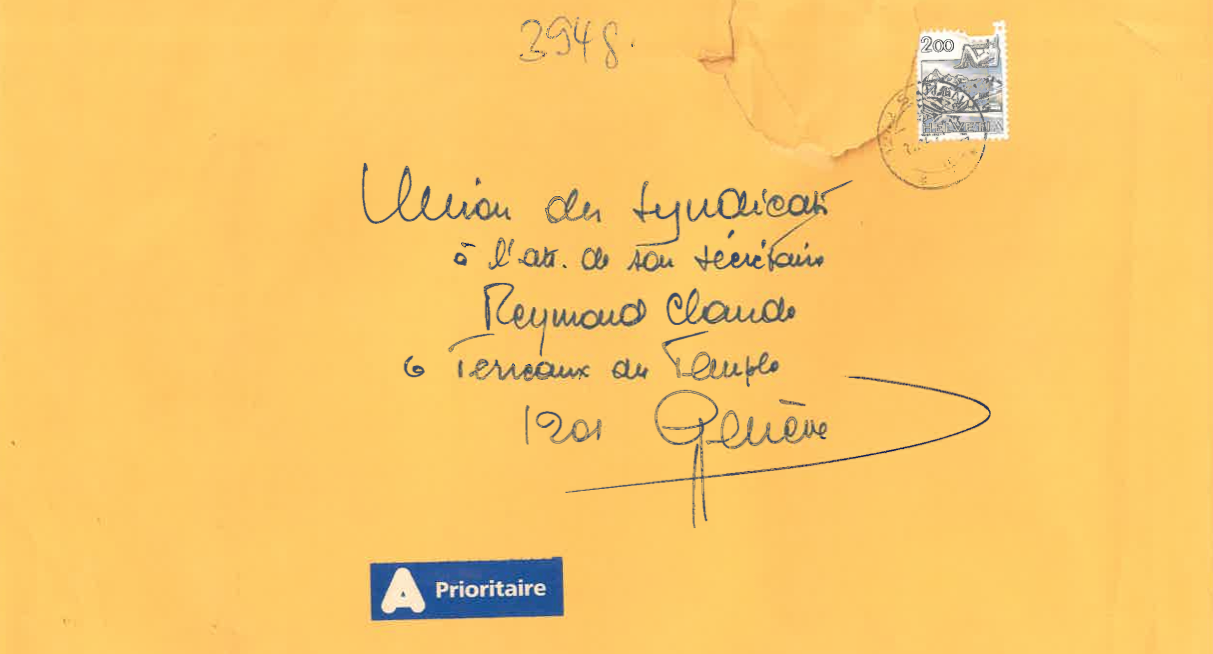 3948.
200
HELVETIA
Union des syndicats
à l'att. de son secrétaire
Reymond Claude
6 Terreaux du Temple
1201 Genève
A Prioritaire